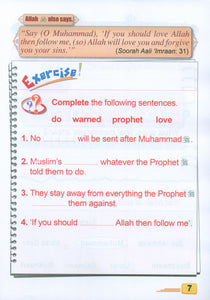 Allah ﷻ also says,
"Say (O Muhammad), 'If you should love Allah
then follow me, (so) Allah will love you and forgive
you your sins.'"
(Soorah Aali 'Imraan: 31)
Exercise!
Complete the following sentences.
do warned prophet love
1. No ______ will be sent after Muhammad ﷺ.
2. Muslim's ______ whatever the Prophet ﷺ
told them to do.
3. They stay away from everything the Prophet ﷺ
______ them against.
4. 'If you should ______ Allah then follow me'.
7